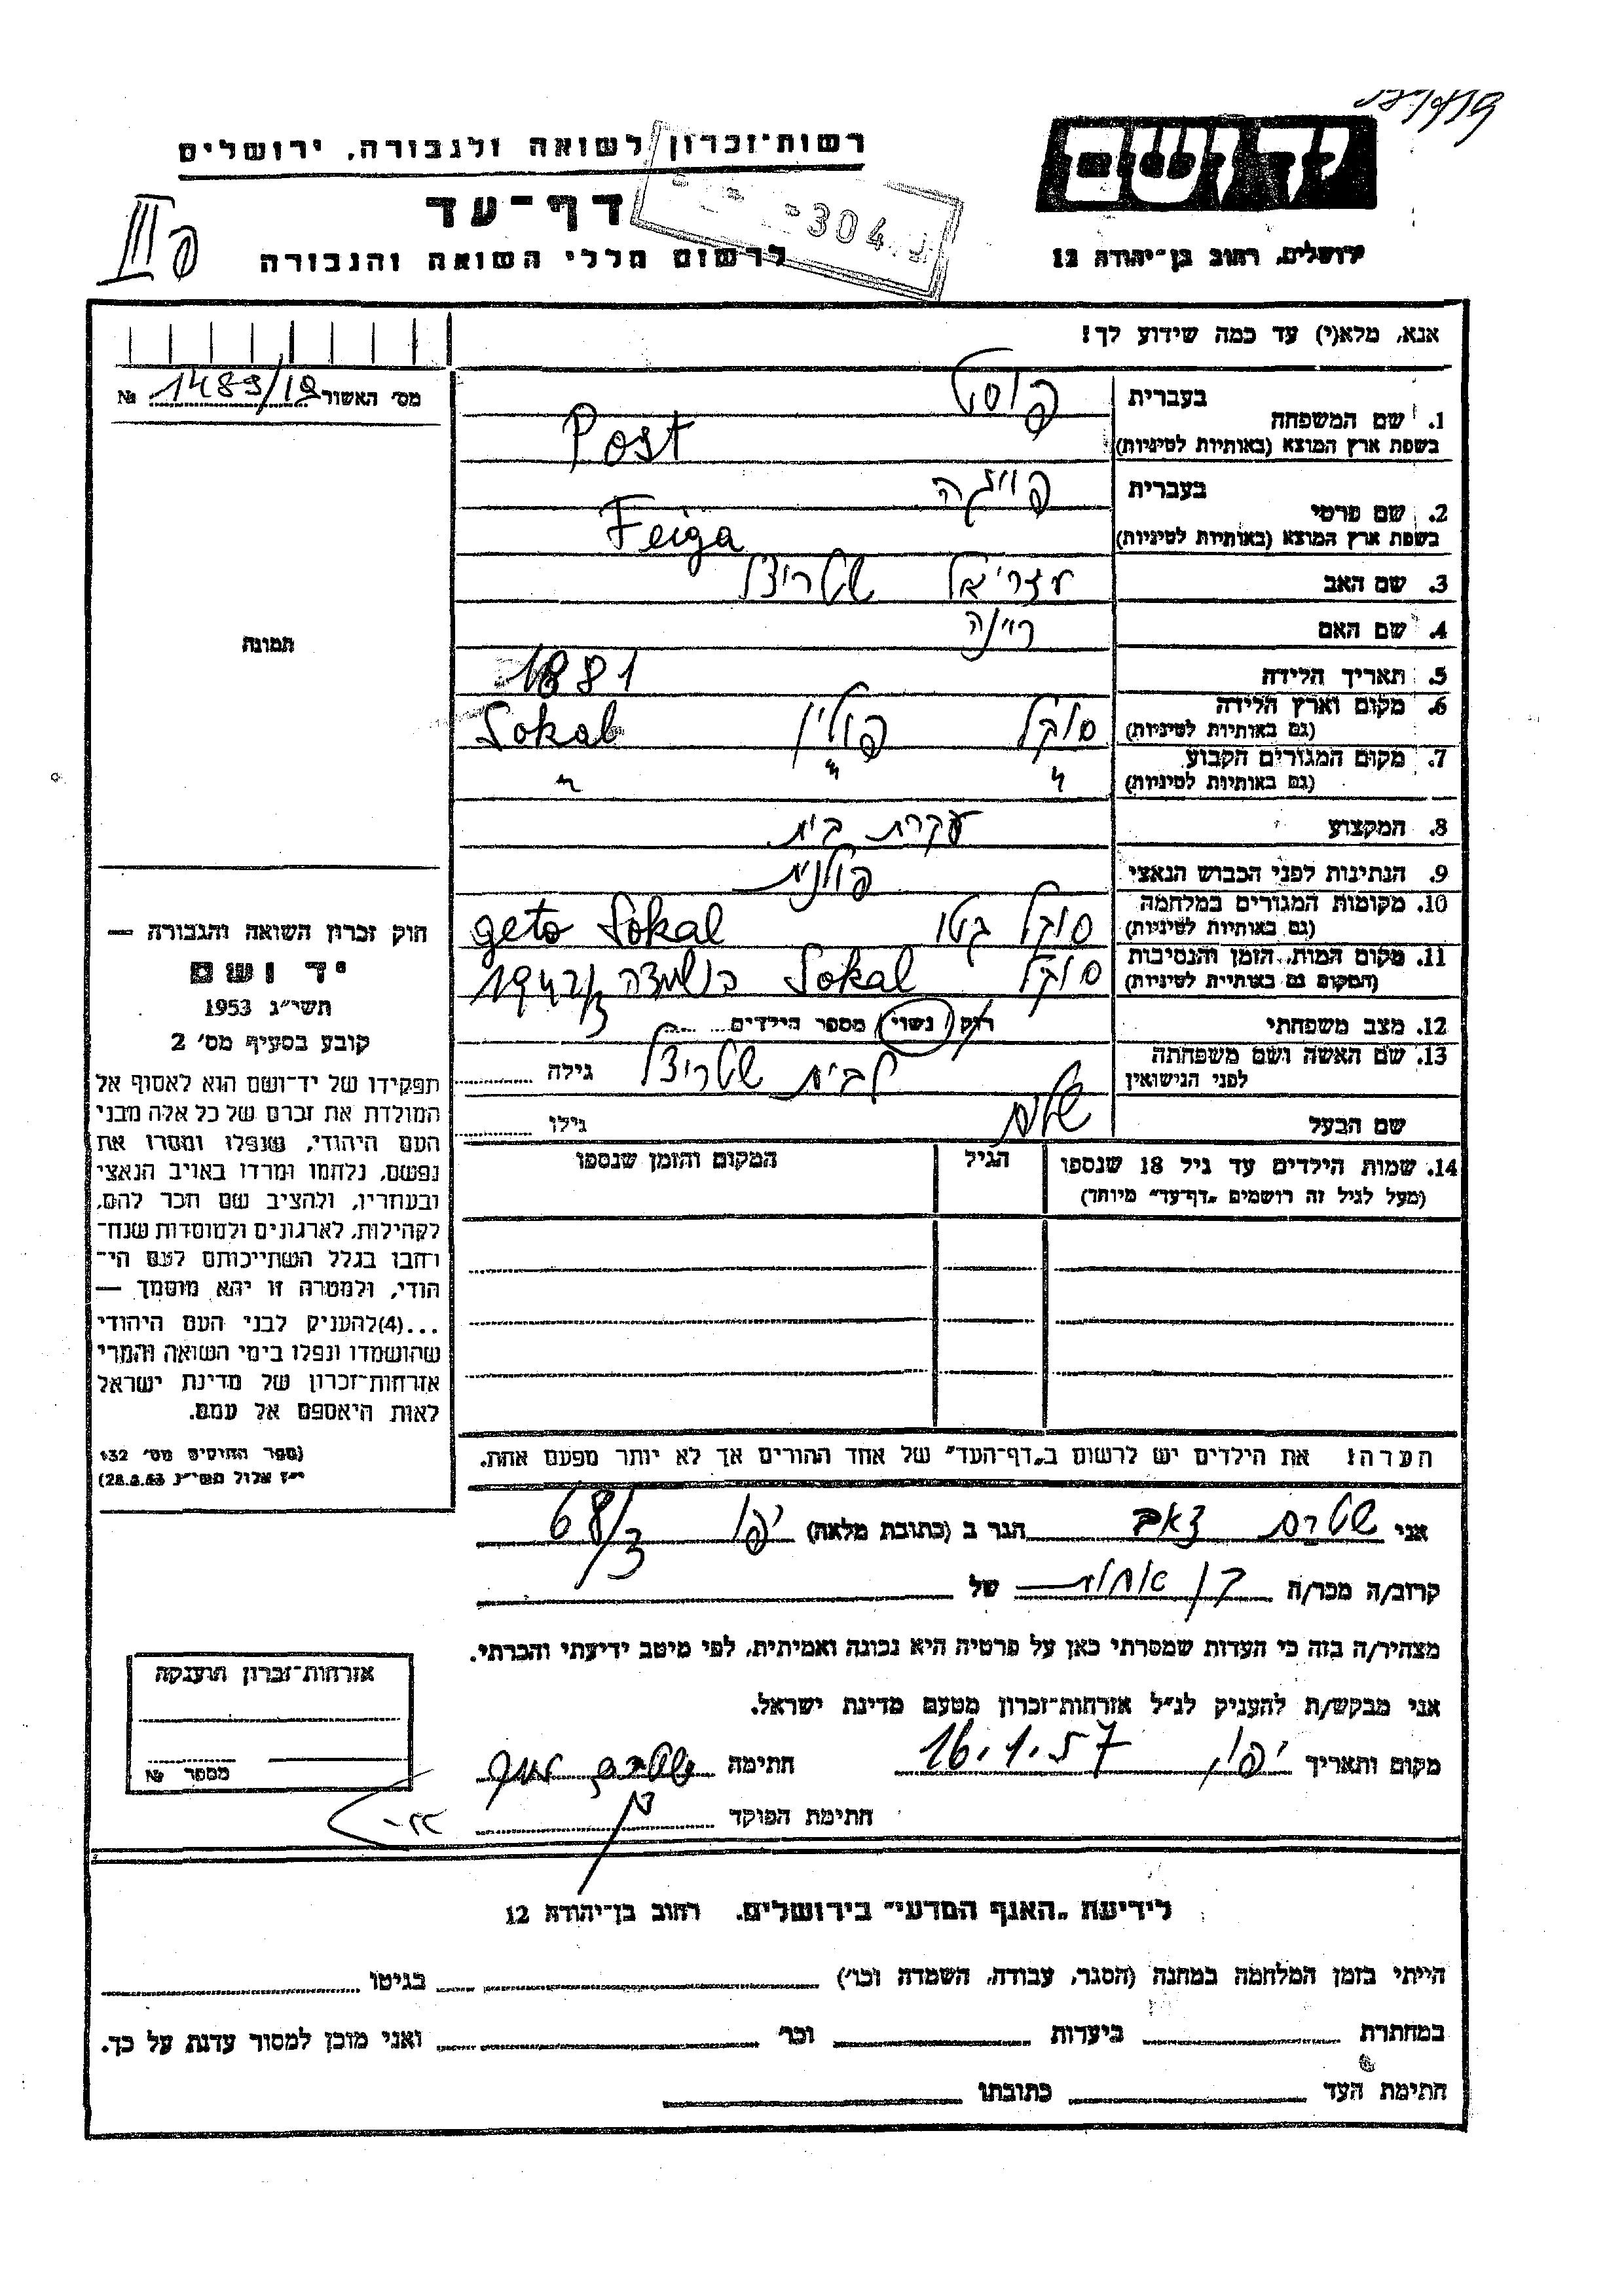 רשות־זכרון לשואה ולגבורה, ירושלים
דף־עד
לרשום חללי השואה והגבורה
יד ושם
ירושלים, רחוב בן־יהודה 12
304
III
אנא, מלא(י) עד כמה שידוע לך!
מס' האשור 1489/19 №
תמונה
1. שם המשפחה
בעברית פוסט
בשפת ארץ המוצא (באותיות לטיניות) Post
2. שם פרטי
בעברית פייגה
בשפת ארץ המוצא (באותיות לטיניות) Feiga
3. שם האב עזריאל
4. שם האם ריינה
5. תאריך הלידה 1881
6. מקום וארץ הלידה סוקל פולין Sokal
(גם באותיות לטיניות)
7. מקום המגורים הקבוע " " "
(גם באותיות לטיניות)
8. המקצוע עקרת בית
9. הנתינות לפני הכבוש הנאצי פולנית
10. מקומות המגורים במלחמה סוקל גטו geto Sokal
(גם באותיות לטיניות)
11. מקום המות, הזמן והנסיבות סוקל Sokal 1942/3
(המקום גם באותיית לטיניות)
12. מצב משפחתי רוק / נשוי / מספר הילדים
13. שם האשה ושם משפחתה לבית גילה
לפני הנישואין
שם הבעל שלום גילו
14. שמות הילדים עד גיל 18 שנספו הגיל המקום והזמן שנספו
(מעל לגיל זה רושמים „דף־עד" מיוחד)
הערה: את הילדים יש לרשום ב„דף־העד" של אחד ההורים אך לא יותר מפעם אחת.
חוק זכרון השואה והגבורה —
יד ושם
תשי״ג 1953
קובע בסעיף מס' 2
תפקידו של יד־ושם הוא לאסוף אל
המולדת את זכרם של כל אלה מבני
העם היהודי, שנפלו ומסרו את
נפשם, נלחמו ומרדו באויב הנאצי
ובעוזריו, ולהציב שם וזכר להם,
לקהילות, לארגונים ולמוסדות שנח־
רחבו בגלל השתייכותם לעם הי־
הודי, ולמטרה זו יהא מוסמך —
...(4)להעניק לבני העם היהודי
שהושמדו ונפלו בימי השואה והמרי
אזרחות־זכרון של מדינת ישראל
לאות היאספם אל עמם.
(ספר החוקים מס' 132
י״ז אלול תשי״ג 28.8.53)
אני שטרם זאב הגר ב (כתובת מלאה) יפו 68/3
קרוב/ה מכר/ה בן אחות של
מצהיר/ה בזה כי העדות שמסרתי כאן על פרטיה היא נכונה ואמיתית, לפי מיטב ידיעתי והכרתי.
אני מבקש/ת להעניק לנ״ל אזרחות־זכרון מטעם מדינת ישראל.
מקום ותאריך יפו, 16.1.57 חתימה
חתימת הפוקד
אזרחות־זכרון הוענקה
מספר №
לידיעת „האגף המדעי" בירושלים, רחוב בן־יהודה 12
הייתי בזמן המלחמה במחנה (הסגר, עבודה, השמדה וכו') בגיטו
במחתרת ביערות וכו' ואני מוכן למסור עדות על כך.
חתימת העד כתובתו